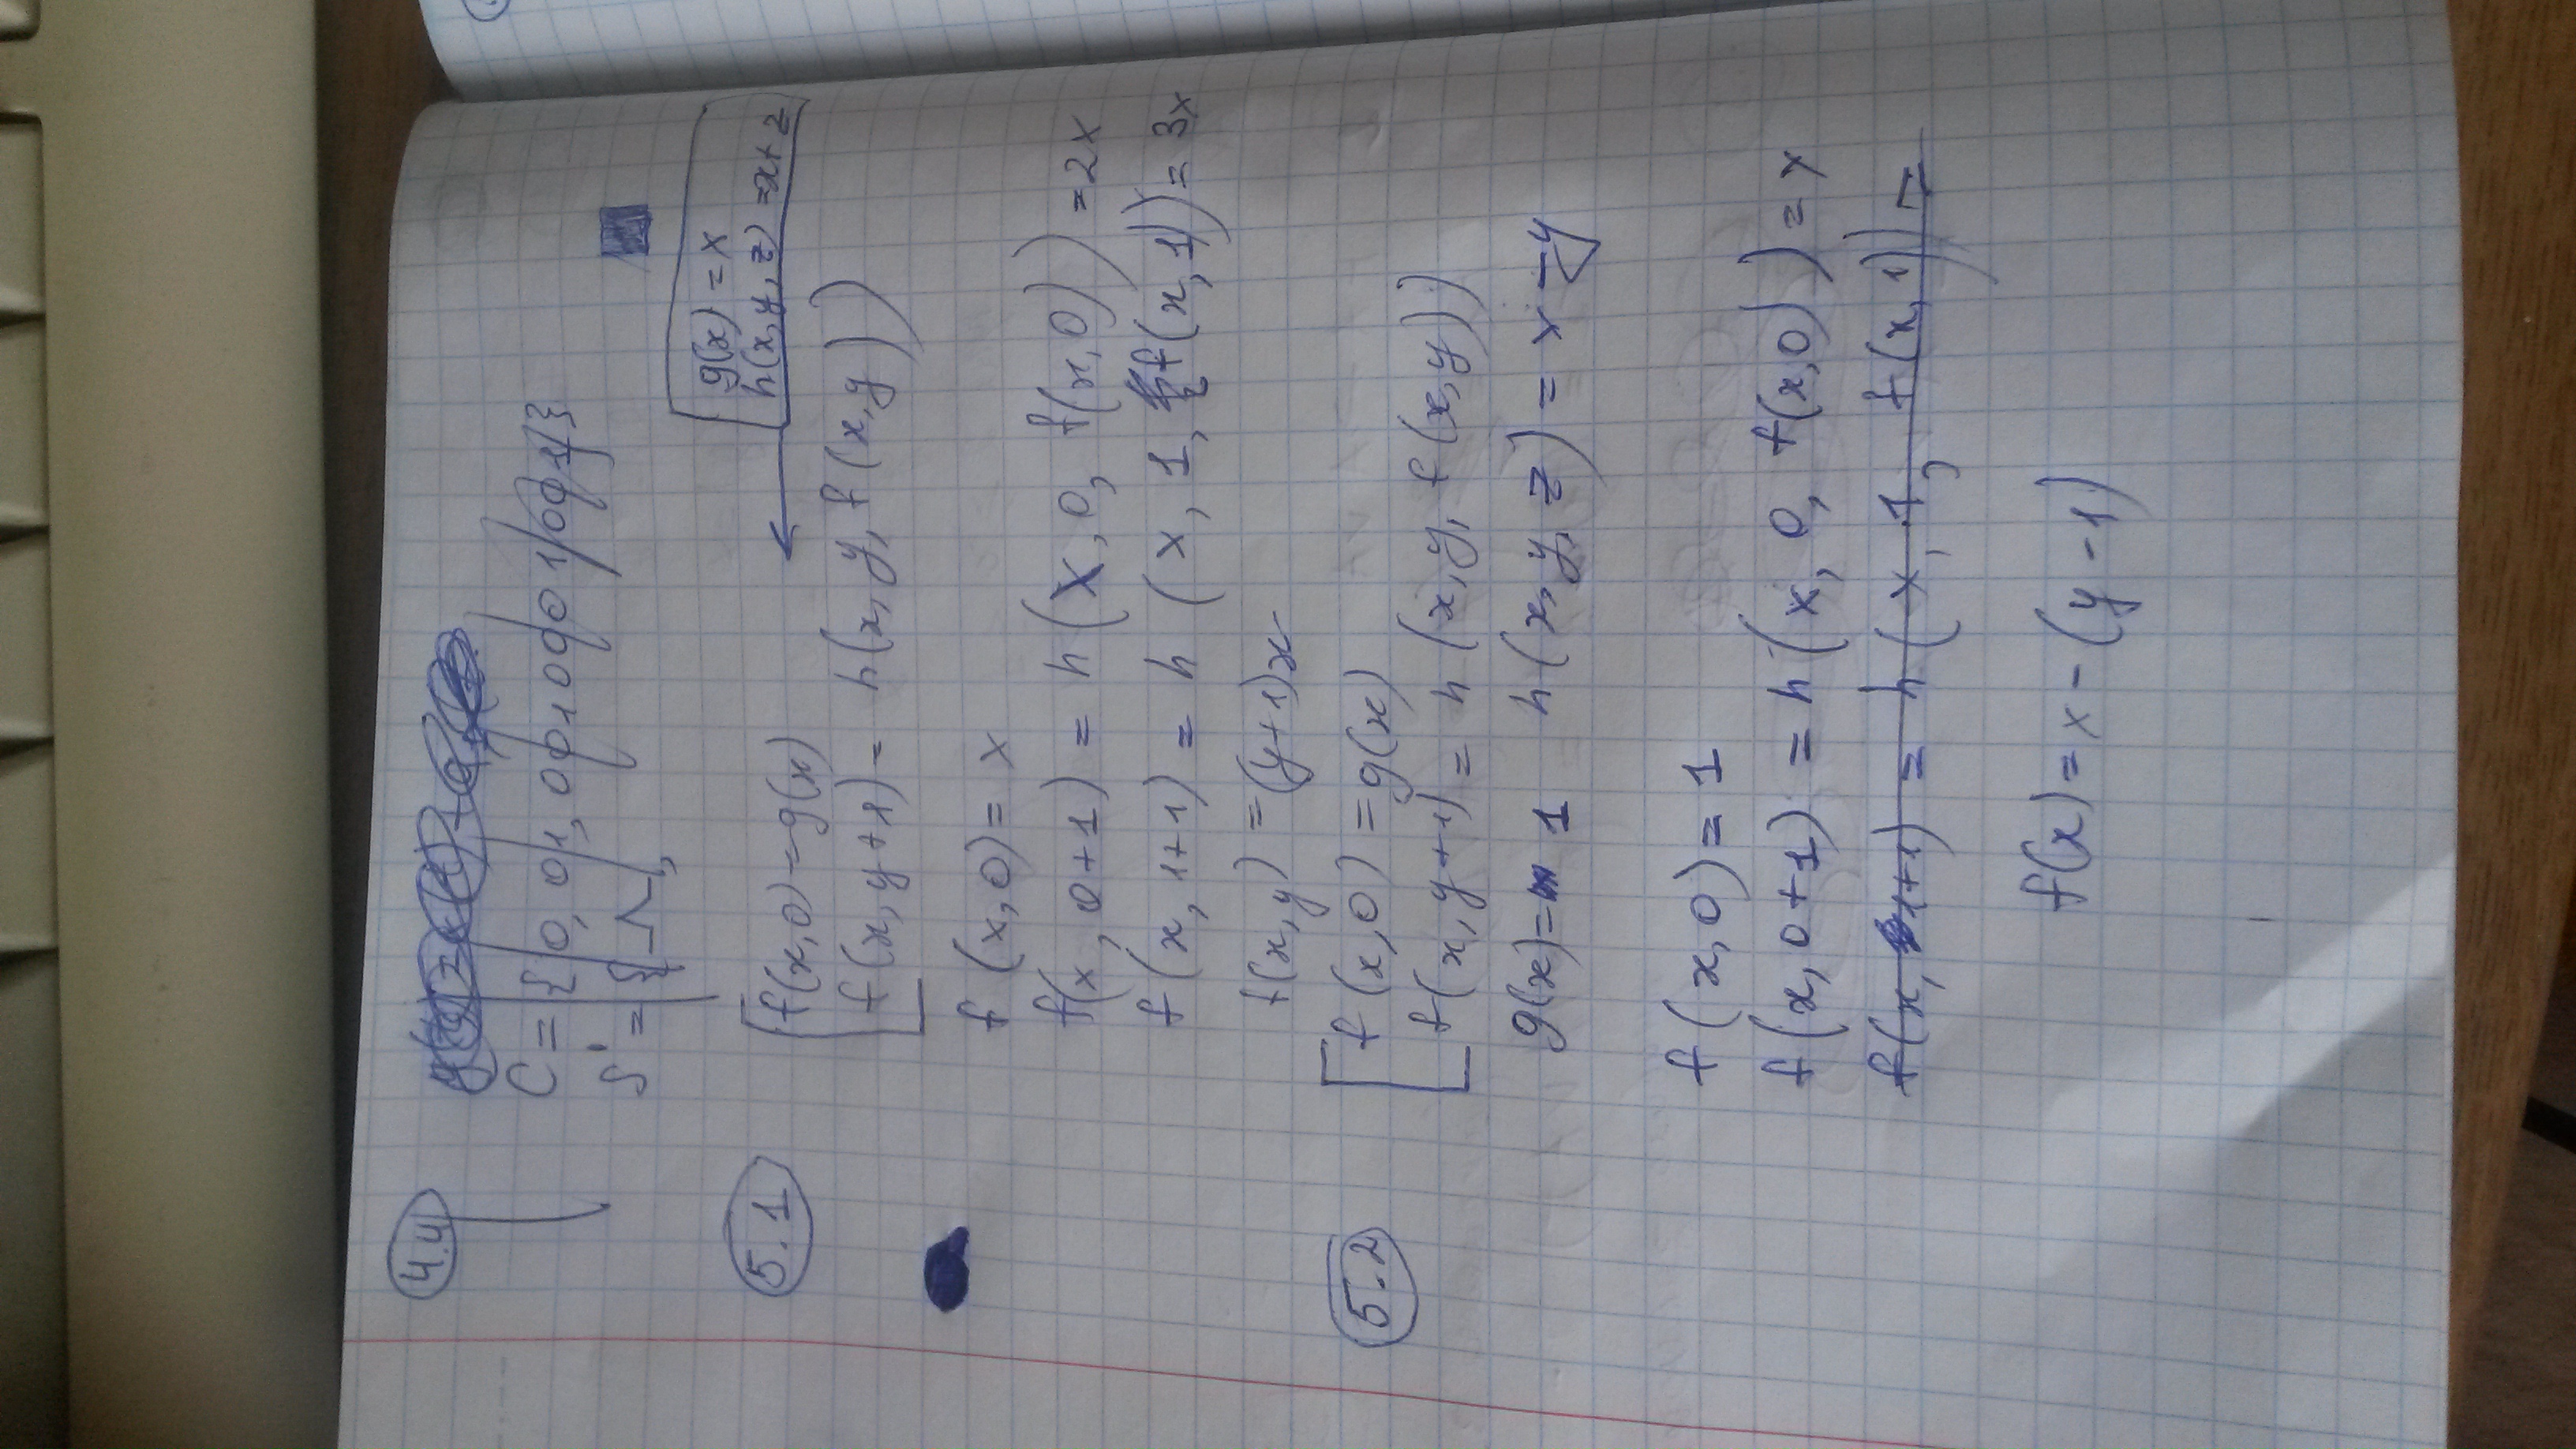 4.4
C = {0, 01, 0φ10φ01, 0φ1}
S' = {Λ,
g(x) = x
h(x,y,z) = x+z
5.1
f(x,0) = g(x)
f(x,y+1) = h(x,y,f(x,y))
f(x,0) = x
f(x,0+1) = h(x,0,f(x,0)) = 2x
f(x,1+1) = h(x,1,f(x,1)) = 3x
f(x,y) = (y+1)x
5.2
f(x,0) = g(x)
f(x,y+1) = h(x,y,f(x,y))
g(x) = 1 h(x,y,z) = x - y
f(x,0) = 1
f(x,0+1) = h(x,0,f(x,0)) = x
f(x,1+1) = h(x,1,f(x,1)) =
f(x) = x - (y-1)